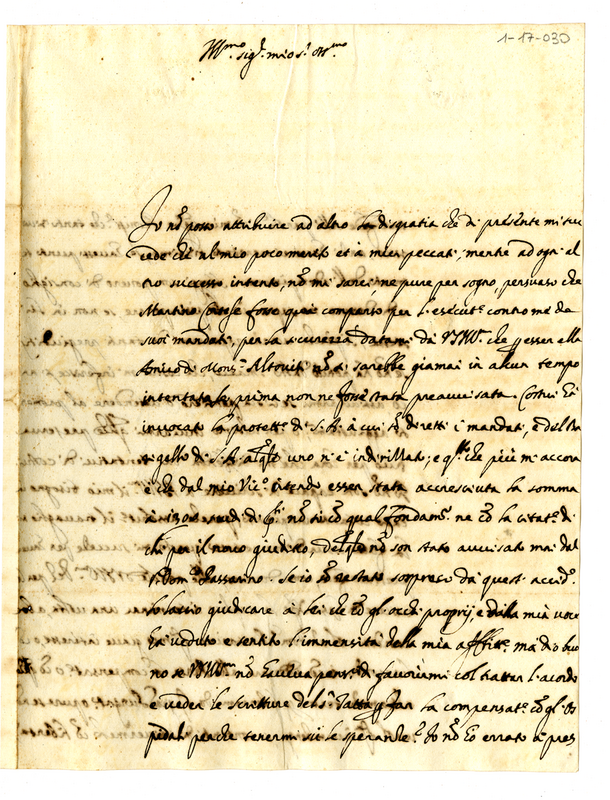 1-17-030
Ill.mo sig.r mio s.r oss.mo
Io nō posso attribuire ad altro la disgratia che di presente mi suc
cede che al mio poco merito et à miei peccati, mentre ad ogni al
tro successo intento, nō mi sarei, ne pure per sogno, persuaso che
Martino fosse quei comparso per l'esecut.e contro me de
suoi mandati, per la sicurezza datami dà VSIll. che essen ella
Amico di Mons.r Altoviti nō si sarebbe giamai in alcun tempo
intentata se prima non ne fosse stata preavvisata. Costui hà
invocato la protett.e di S.A. à cui sō diretti i mandati, e dal Ba
rigello di S.A. uno n'è indirizzato; e q.llo che più mi accora
è che dal mio Vic.o intendo essere stata accresciuta la somma
scudi di nō sò cō qual fondam.o ne cō la citat.e di
chi per il novo giuditio, del q.le nō son stato avvisato mai dal
S. Dom.o Passarino. Se io sō restato sorpreso dà questi accid.i
lo lascio giudicare à lei che cō gl'occhi proprij, e dalla mia voce
hà veduto e sentito l'immensità della mia afflitt.e ma dio buo
no se VSIll.ma nō haveva pens.o di favorirmi col trattar l'acordo
e veder le scritture del s.r Tatta, e far la compensat.e cō gl'os
pedali perche tenermi sù le speranze? Io nō hò errato à pres